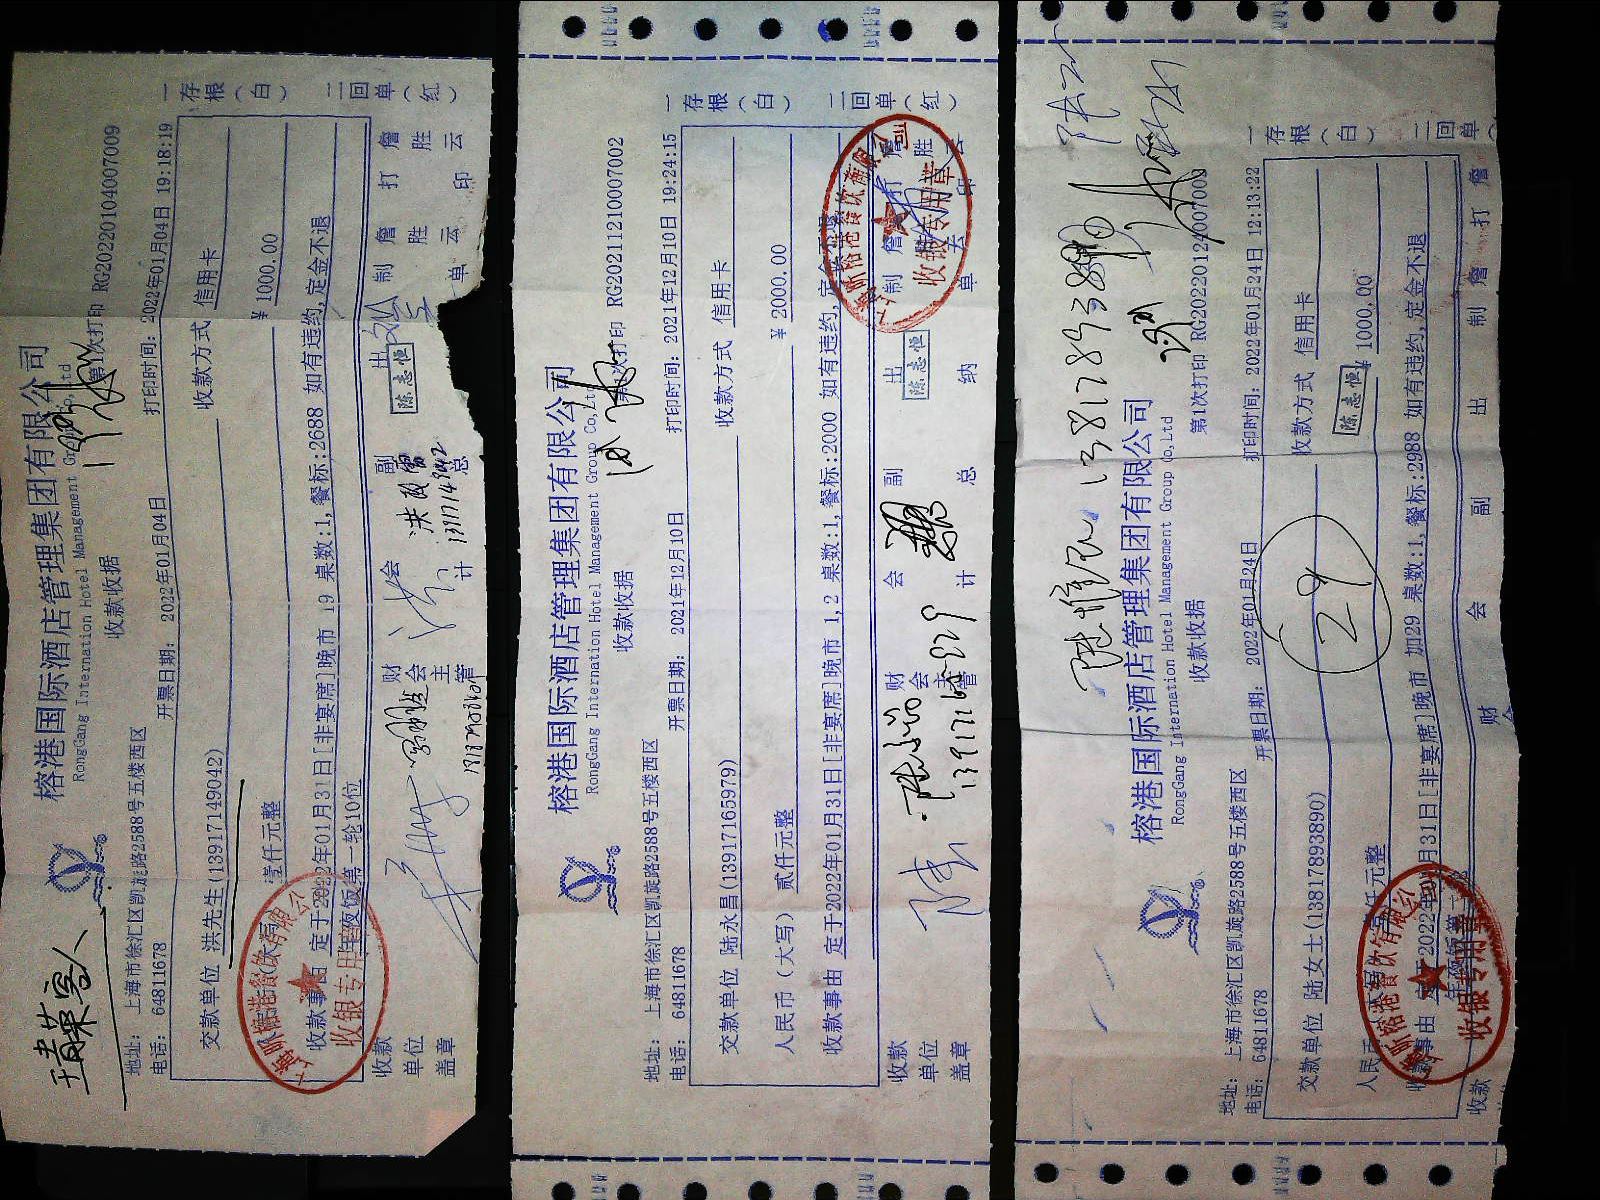 榕港国际酒店管理集团有限公司
RongGang International Hotel Management Group Co,Ltd
收款收据
第1次打印 RG20220104007009
地址: 上海市徐汇区凯旋路2588号五楼西区
电话: 64811678
开票日期: 2022年01月04日
打印时间: 2022年01月04日 19:18:19
交款单位 洪先生(13917149042)
收款方式 信用卡
壹仟元整
¥ 1000.00
收款事由 定于2022年01月31日[非宴席]晚市 19 桌数:1,餐标:2688 如有违约,定金不退
年夜饭第一轮10位
收款单位盖章
财会主管
会计
副总
出
陈志恒
制单 詹胜云
打印 詹胜云
一存根(白)
二回单(红)
收银专用章
榕港国际酒店管理集团有限公司
RongGang International Hotel Management Group Co,Lt
收款收据
次打印 RG20211210007002
地址: 上海市徐汇区凯旋路2588号五楼西区
电话: 64811678
开票日期: 2021年12月10日
打印时间: 2021年12月10日 19:24:15
交款单位 陆永昌(13917165979)
收款方式 信用卡
人民币(大写) 贰仟元整
¥ 2000.00
收款事由 定于2022年01月31日[非宴席]晚市 1,2 桌数:1,餐标:2000 如有违约,定
收款单位盖章
财会主管
会计
副总
出纳
陈志恒
制单 詹
打 詹胜云
一存根(白)
二回单(红)
收银专用章
13817893890
榕港国际酒店管理集团有限公司
RongGang International Hotel Management Group Co,Ltd
收款收据
第1次打印 RG2022012400700
地址: 上海市徐汇区凯旋路2588号五楼西区
电话: 64811678
开票日期: 2022年01月24日
打印时间: 2022年01月24日 12:13:22
交款单位 陆女士(13817893890)
收款方式 信用卡
29
人民币 仟元整
陈志恒
¥ 1000.00
事由 定于2022年01月31日[非宴席]晚市 加29 桌数:1,餐标:2988 如有违约,定金不退
收款
财
会
副
出
制 詹
打 詹
一存根(白)
二回单(
收银专用章